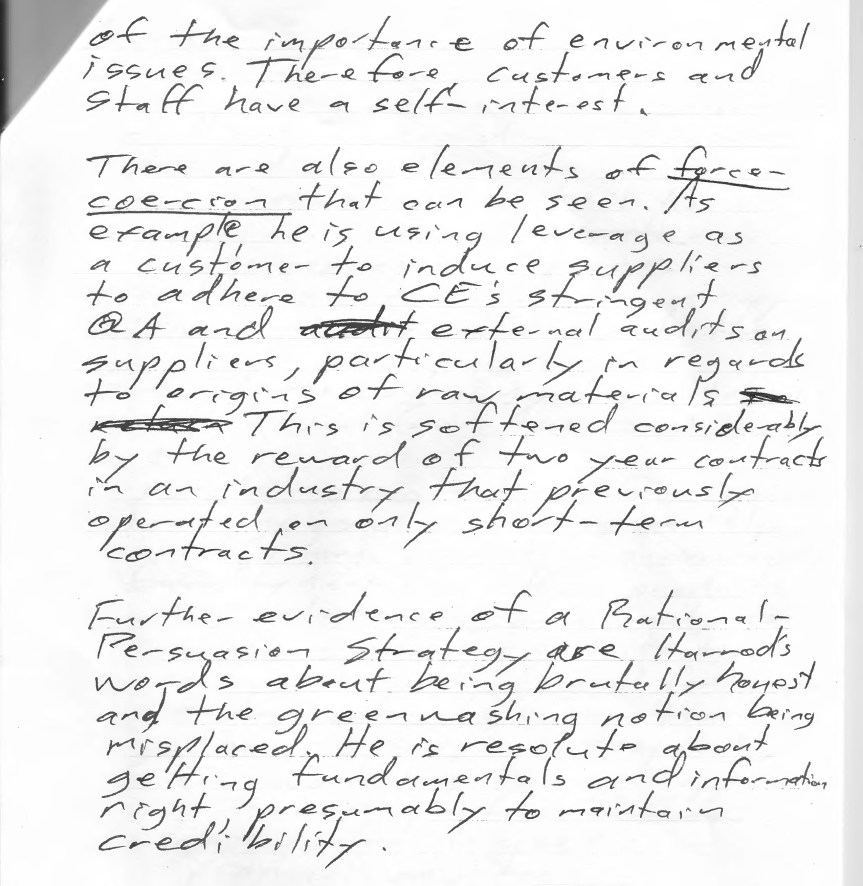 of the importance of environmental
issues. Therefore, customers and
staff have a self-interest.
There are also elements of force-
coercion that can be seen. Its
example, he is using leverage as
a customer to induce suppliers
to adhere to CE's stringent
QA and external audits on
suppliers, particularly in regards
to origins of raw materials
This is softened considerably
by the reward of two year contracts
in an industry that previously
operated on only short-term
contracts.
Further evidence of a Rational-
Persuasion Strategy are Harrod's
words about being brutally honest
and the greenwashing notion being
misplaced. He is resolute about
getting fundamentals and information
right, presumably to maintain
credibility.